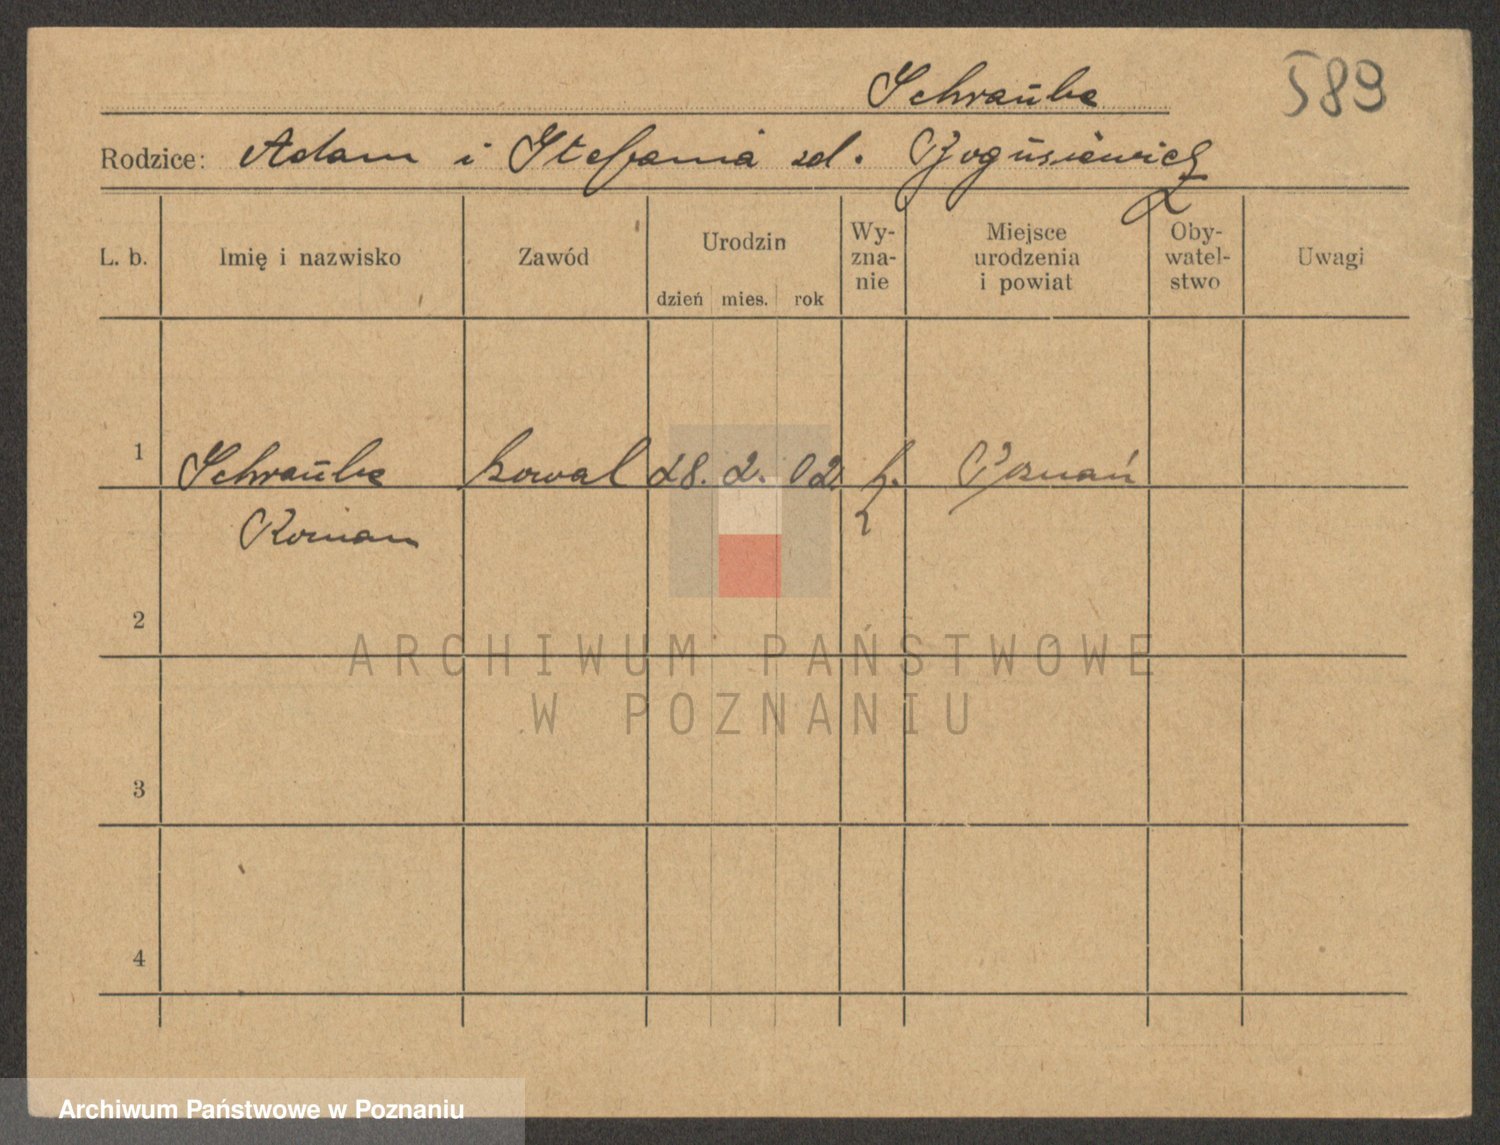 Schraube
589
Rodzice: Adam i Stefania zd. Bogusiewicz
L. b.
Imię i nazwisko
Zawód
Urodzin
dzień mies. rok
Wy-
zna-
nie
Miejsce
urodzenia
i powiat
Oby-
watel-
stwo
Uwagi
1 Schraube kowal 28. 2. 02. k. Poznań
Roman
2
ARCHIWUM PAŃSTWOWE
W POZNANIU
3
4
Archiwum Państwowe w Poznaniu